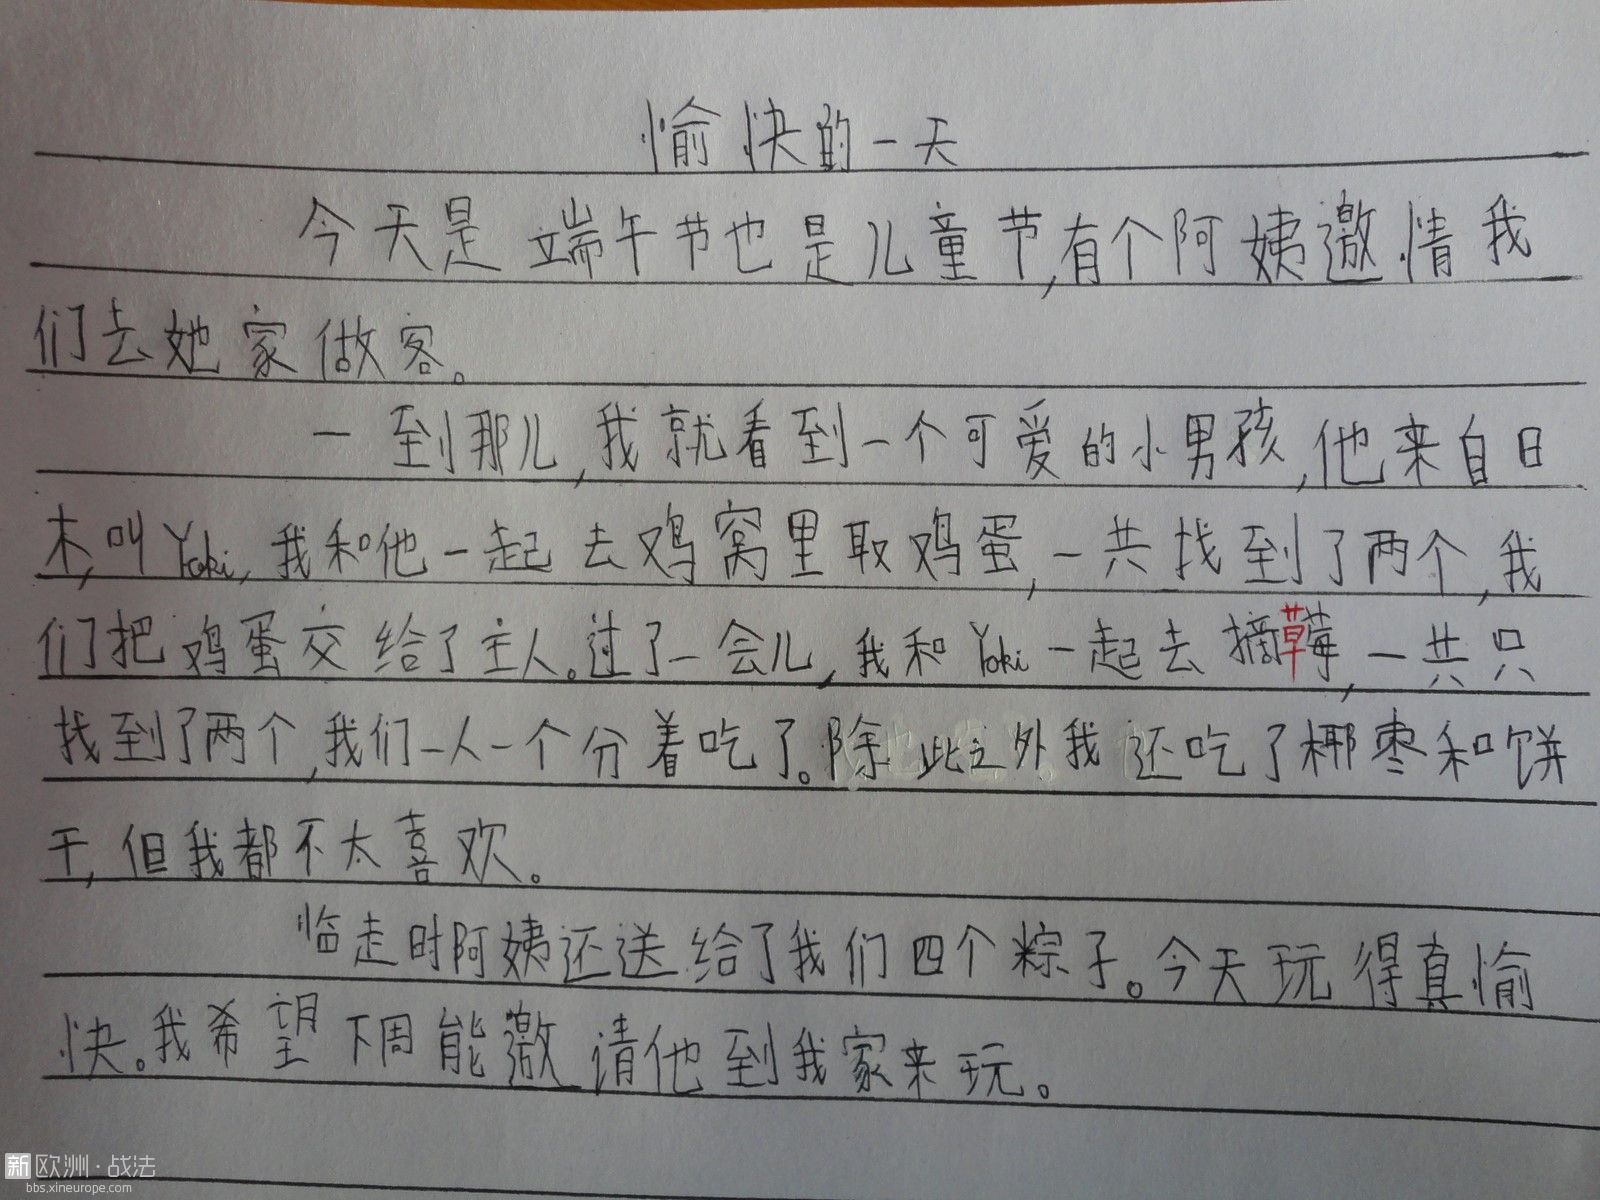 愉快的一天
今天是端午节也是儿童节,有个阿姨邀情我
们去她家做客。
一到那儿,我就看到一个可爱的小男孩,他来自日
木,叫Yoki,我和他一起去鸡窝里取鸡蛋,一共找到了两个,我
们把鸡蛋交给了主人。过了一会儿,我和Yoki一起去摘草莓,一共只
找到了两个,我们一人一个分着吃了。除此之外我还吃了椰枣和饼
干,但我都不太喜欢。
临走时阿姨还送给了我们四个粽子。今天玩得真愉
快。我希望下周能邀请他到我家来玩。
新欧洲·战法
bbs.xineurope.com